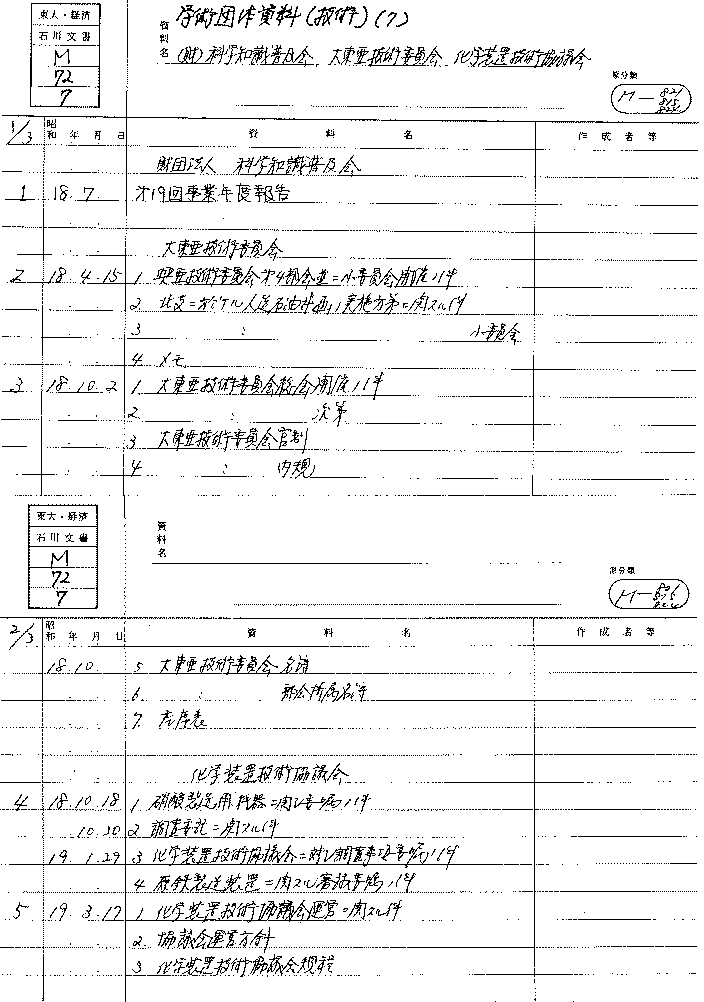 東大・経済
石川文書
M
72
7
資料名
学術団体資料(技術)(7)
(財)科学知識普及会、大東亜技術委員会、化学装置技術協議会
原分類
M—821
815
824
1/3 昭和 年 月 日 資 料 名 作成者等
財団法人 科学知識普及会
1 18. 7 才19回事業年度報告
大東亜技術委員会
2 18. 4. 15 1 興亜技術委員会才4部会並ニ小委員会開催ノ件
2 北支ニ於ケル人造石油計画ノ実施方策ニ関スル件
3 : 小委員会
4 メモ
3 18. 10. 2 1 大東亜技術委員会総会開催ノ件
2 : 次第
3 大東亜技術委員会官制
4 : 内規
東大・経済
石川文書
M
72
7
資料名
原分類
M—
2/3 昭和 年 月 日 資 料 名 作成者等
18. 10. 5 大東亜技術委員会名簿
6 : 部会所属名簿
7 座席表
化学装置技術協議会
4 18. 10. 18 1 硝酸製造用機器ニ関シ委嘱ノ件
10. 20 2 調査委託ニ関スル件
19. 1. 29 3 化学装置技術協議会ニ対シ調査事項委嘱ノ件
4 製造装置ニ関スル審議委嘱ノ件
5 19. 3. 17 1 化学装置技術協議会運営ニ関スル件
2 協議会運営方針
3 化学装置技術協議会規程